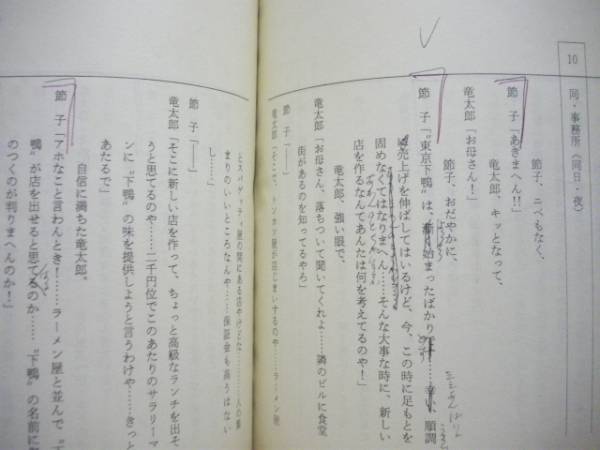 10
同・事務所（同日・夜）
節子、ニベもなく、
節　子「あきまへん!!」
竜太郎、キッとなって、
竜太郎「お母さん！」
節子、おだやかに、
節　子「〝東京下鴨〟は、
始まったばかり
幸い、順調
売上げを伸ばしてはいるけど、今、この時に足もとを
固めなくてはなりまへん……そんな大事な時に、新しい
店を作るなんてあんたは何を考えてるのや！」
竜太郎、強い眼で、
竜太郎「お母さん、落ちついて聞いてくれよ……隣のビルに食堂
街があるのを知ってるやろ」
節　子「――」
竜太郎「そこで、トンカツ屋が店じまいするのや……ラーメン屋
とスパゲッティ屋の間にある店やけどな……人の集
まりのいいところなんや……保証金も高うはない
し……」
節　子「――」
竜太郎「そこに新しい店を作って、ちょっと高級なランチを出そ
うと思てるのや……二千円位でこのあたりのサラリーマ
ンに〝下鴨〟の味を提供しようと言うわけや……きっと
あたるで」
自信に満ちた竜太郎。
節　子「アホなこと言わんとき！……ラーメン屋と並んで〝下
鴨〟が店を出せると思てるのか……〝下鴨〟の名前に
のつくのが判りまへんのか！」